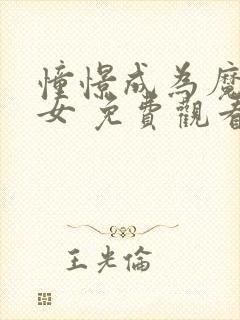 憧憬成為魔
女 免費觀看
王光倫